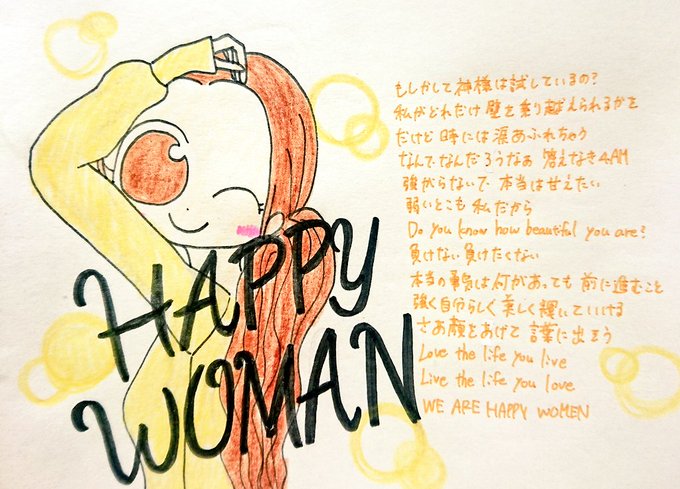 HAPPY
WOMAN
もしかして神様は試しているの?
私がどれだけ壁を乗り越えられるかを
だけど時には涙あふれちゃう
なんでなんだろうなあ 答えなき4AM
強がらないで 本当は甘えたい
弱いとこも 私だから
Do you know how beautiful you are?
負けない 負けたくない
本当の勇気は何があっても 前に進むこと
強く自分らしく美しく輝いていける
さあ顔をあげて 言葉に出そう
Love the life you live
Live the life you love
WE ARE HAPPY WOMEN